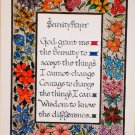 Serenity Prayer
God grant me
the Serenity to
accept the things
I cannot change
Courage to change
the things I can
Wisdom to know
the difference.